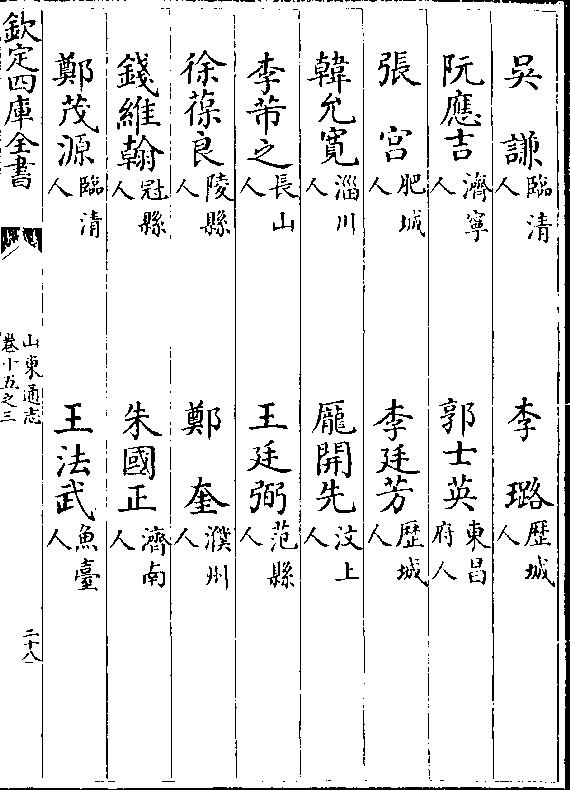 吳謙臨清人 李璐歷城人
阮應吉濟寧人 郭士英東昌府人
張宫肥城人 李廷芳歷城人
韓允寛淄川人 龎開先汶上人
李芾之長山人 王廷弼范縣人
徐葆良陵縣人 鄭奎濮州人
錢維翰冠縣人 朱國正濟南人
鄭茂源臨清人 王法武魚臺人
欽定四庫全書
山東通志
卷十五之三
二十八